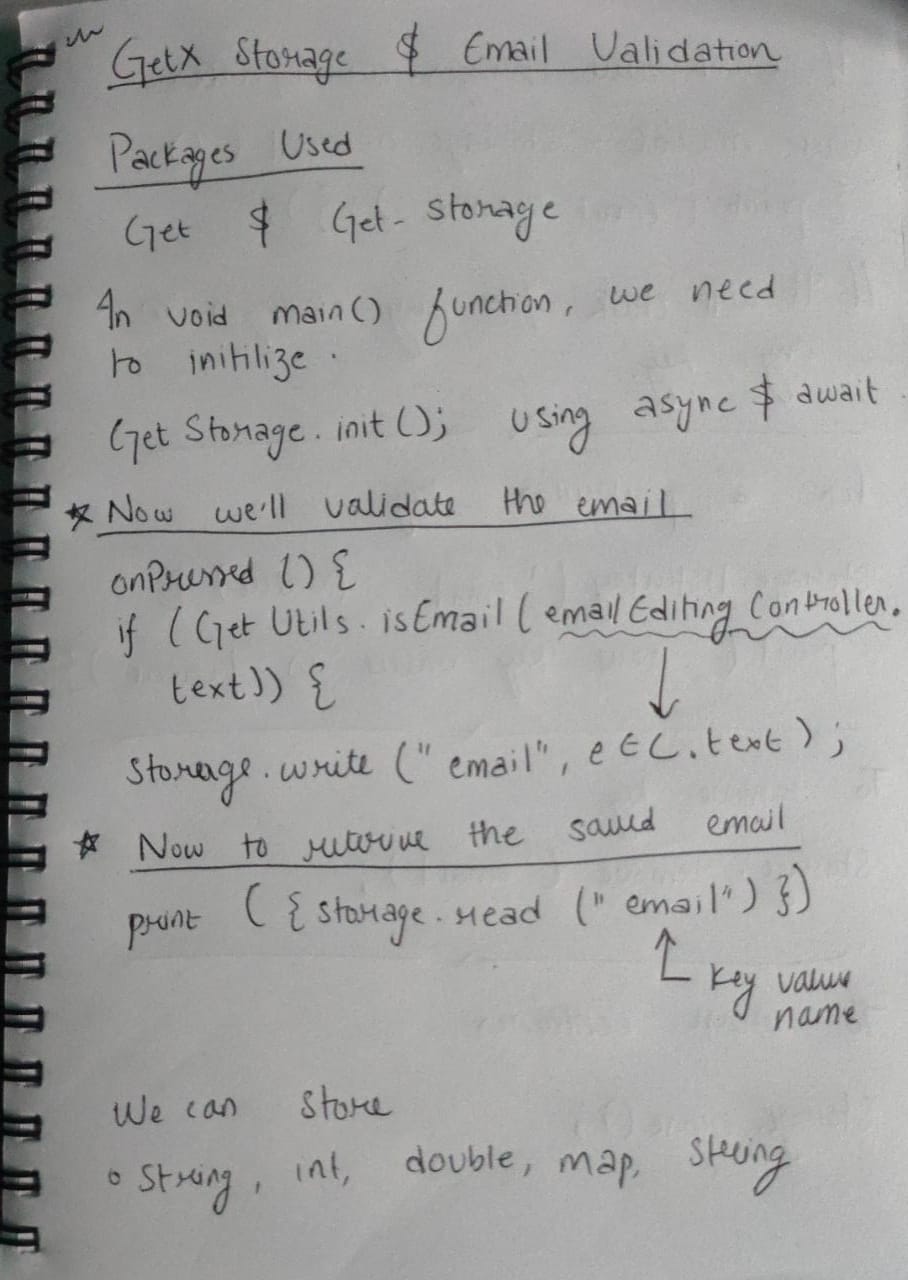 GetX Storage & Email Validation
Packages Used
Get & Get-storage
In void main() function, we need
to initilize.
Get Storage.init(); using async & await.
* Now we'll validate the email
onPressed () {
if (Get Utils.isEmail (emailEditing Controller.
text)) {
Storage.write ("email", eEC.text);
* Now to reterive the saved email
print ({storage.read ("email")})
Key value
name
We can store
o String, int, double, map, String